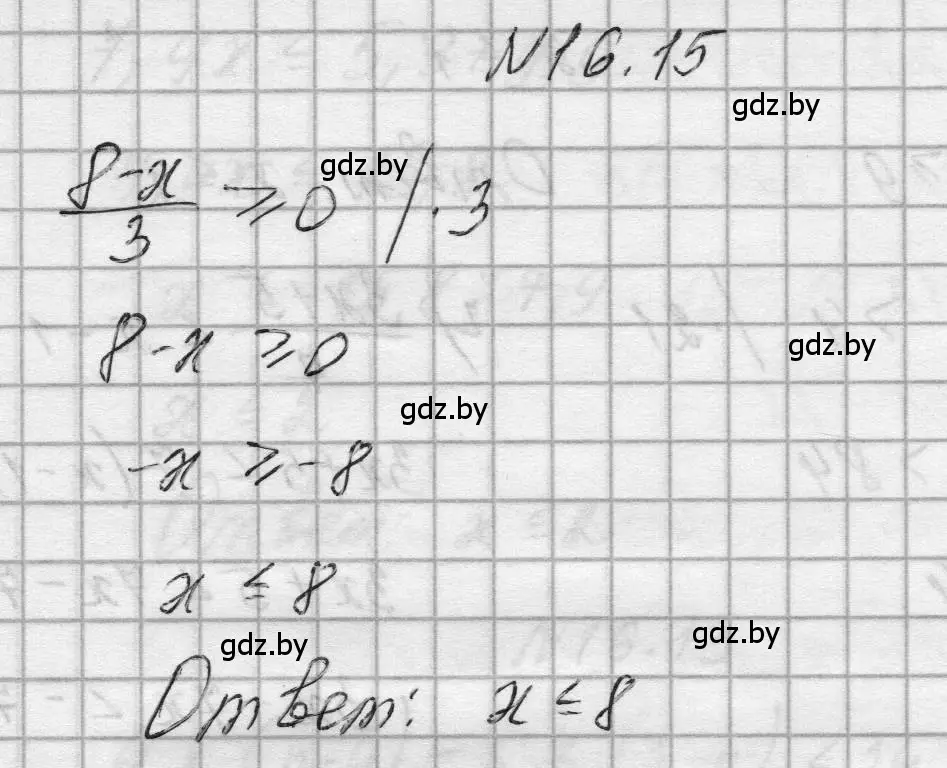 N16.15
gdz.by
8-x/3 ≥ 0 /·3
gdz.by
8-x ≥ 0
gdz.by
gdz.by
-x ≥ -8
x ≤ 8
gdz.by
gdz.by
Ответ: x ≤ 8